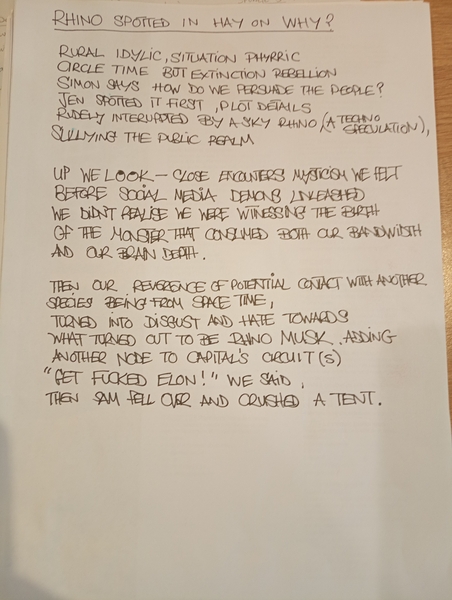 RHINO SPOTTED IN HAY ON WHY?
RURAL IDYLIC, SITUATION PHYRRIC
CIRCLE TIME BUT EXTINCTION REBELLION
SIMON SAYS HOW DO WE PERSUADE THE PEOPLE?
JEN SPOTTED IT FIRST, PLOT DETAILS
RUDELY INTERRUPTED BY A SKY RHINO (A TECHNO SPECULATION),
SULLYING THE PUBLIC REALM
UP WE LOOK – CLOSE ENCOUNTERS MYSTICISM WE FELT
BEFORE SOCIAL MEDIA DEMONS UNLEASHED
WE DIDN'T REALISE WE WERE WITNESSING THE BIRTH
OF THE MONSTER THAT CONSUMED BOTH OUR BANDWIDTH
AND OUR BRAIN DEPTH.
THEN OUR REVERENCE OF POTENTIAL CONTACT WITH ANOTHER
SPECIES BEING FROM SPACE TIME,
TURNED INTO DISGUST AND HATE TOWARDS
WHAT TURNED OUT TO BE RHINO MUSK. ADDING
ANOTHER NODE TO CAPITAL'S CIRCUIT(S)
"GET FUCKED ELON!" WE SAID,
THEN SAM FELL OVER AND CRUSHED A TENT.